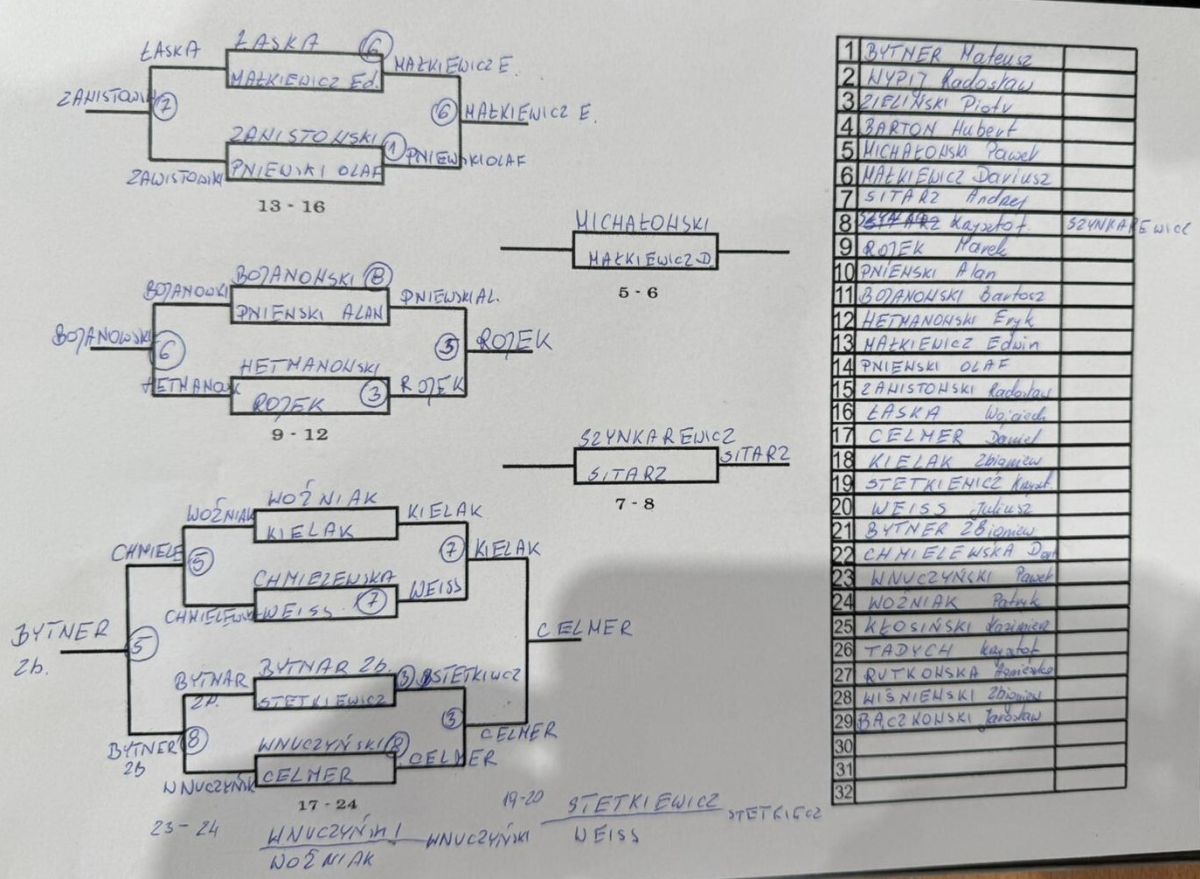 ŁASKA
ŁASKA 6
MAŁKIEWICZ E.
MAŁKIEWICZ Ed.
7
6 MAŁKIEWICZ E.
ZANISTOWSKI
1
ZAWISTOWSKI
PNIEWSKI OLAF
PNIEWSKI OLAF
13 - 16
MICHAŁOWSKI
MAŁKIEWICZ D.
5 - 6
BOJANOWSKI
BOJANOWSKI 8
PNIEWSKI AL.
PNIEWSKI ALAN
BOJANOWSKI
6
3 ROJEK
HETMANOWSKI
HETMANOW
ROJEK 3
ROJEK
9 - 12
SZYNKAREWICZ
SITARZ
SITARZ
7 - 8
WOŹNIAK
WOŹNIAK
KIELAK
KIELAK
CHMIELE
5
7 KIELAK
CHMIELEWSKA
WEISS 7
WEISS
BYTNER
Zb.
5
CELMER
BYTNAR
BYTNAR Zb.
3
STETKIEWICZ
BYTNER
Zb
8
3
CELMER
WNUCZYŃSKI 8
CELMER
CELMER
WNUCZYŃSK
17 - 24
23 - 24
WNUCZYŃSKI
WOŹNIAK
WNUCZYŃSKI
19-20
STETKIEWICZ
WEISS
STETKIECZ
1 BYTNER Mateusz
2 WYPIJ Radosław
3 ZIELIŃSKI Piotr
4 BARTON Hubert
5 MICHAŁOWSKI Paweł
6 MAŁKIEWICZ Dariusz
7 SITARZ Andrzej
8 Krzysztof SZYNKAREWICZ
9 ROJEK Marek
10 PNIEWSKI Alan
11 BOJANOWSKI Bartosz
12 HETMANOWSKI Eryk
13 MAŁKIEWICZ Edwin
14 PNIEWSKI OLAF
15 ZANISTOWSKI Radosław
16 ŁASKA Wojciech
17 CELMER Daniel
18 KIELAK Zbigniew
19 STETKIEWICZ Krzyszt.
20 WEISS Juliusz
21 BYTNER Zbigniew
22 CHMIELEWSKA
23 WNUCZYŃSKI Paweł
24 WOŹNIAK Patryk
25 KŁOSIŃSKI Kazimierz
26 TADYCH Krzysztof
27 RUTKOWSKA Agnieszka
28 WIŚNIEWSKI Zbigniew
29 BĄCZKOWSKI Jarosław
30
31
32